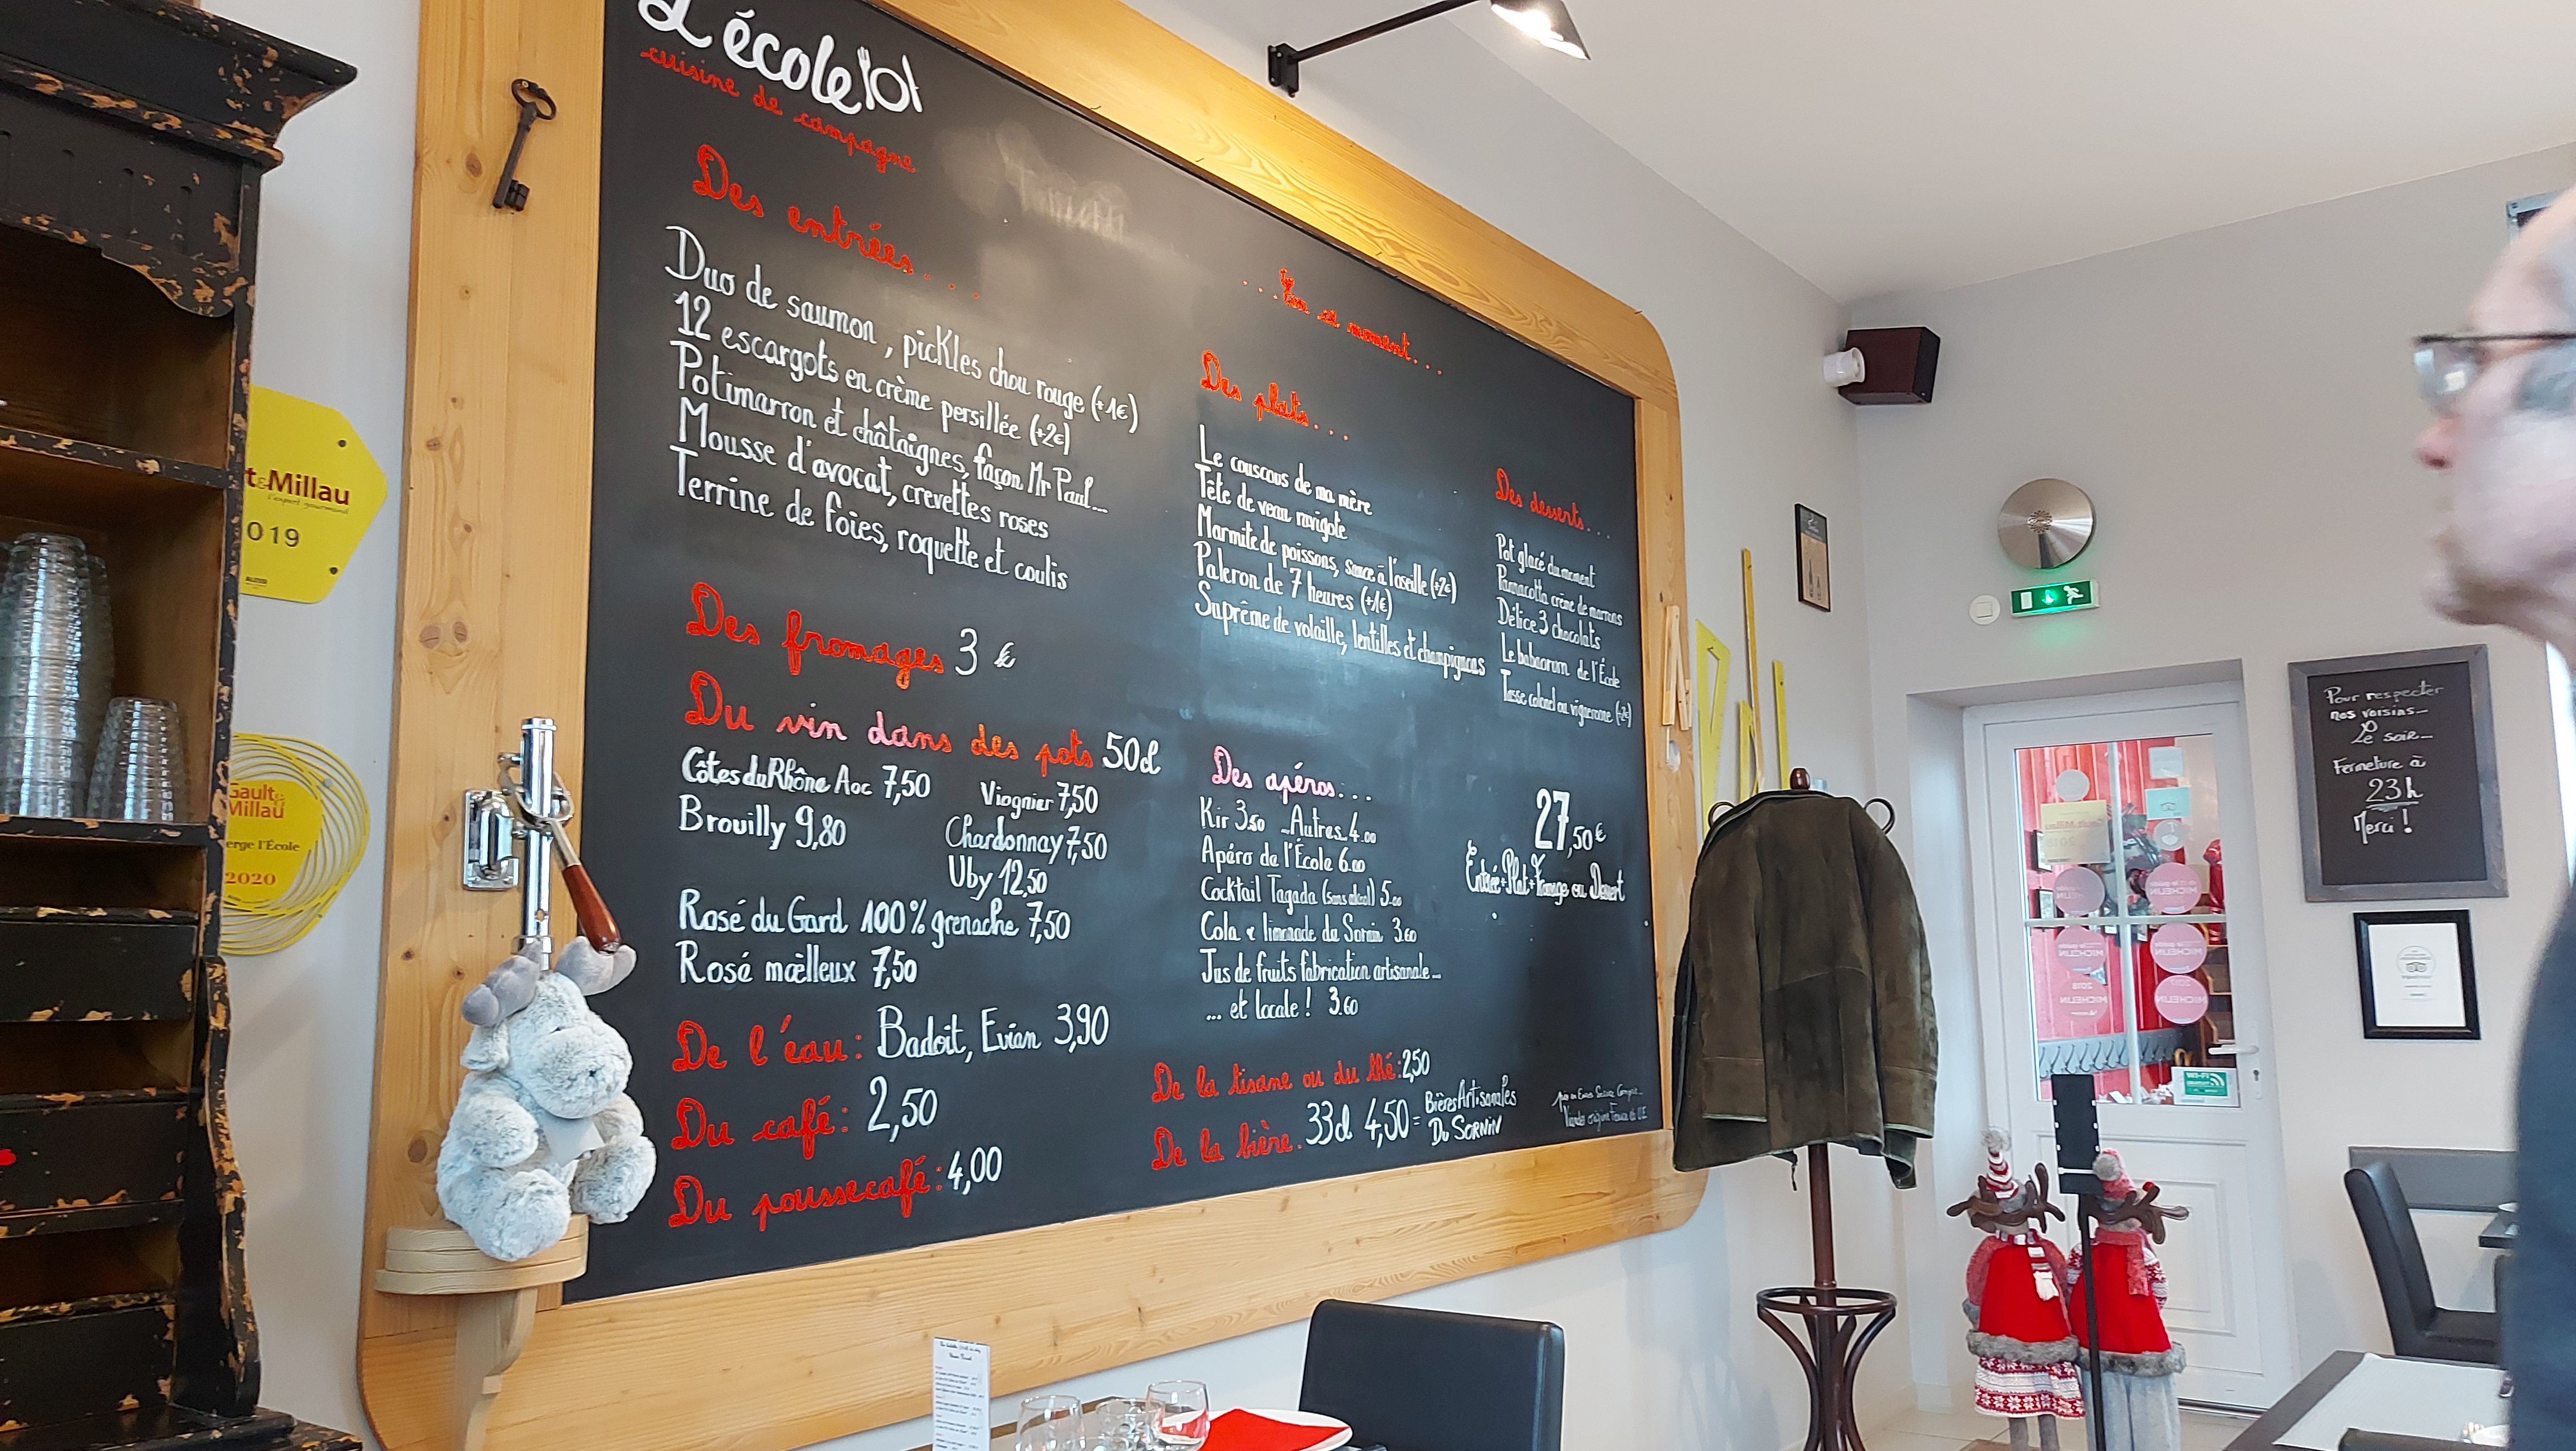 L'école
cuisine de campagne
Des entrées...
Duo de saumon, pickles chou rouge (+1€)
12 escargots en crème persillée (+2€)
Potimarron et châtaignes, façon Mr Paul...
Mousse d'avocat, crevettes roses
Terrine de foies, roquette et coulis
Des fromages 3 €
Du vin dans des pots 50cl
Côtes du Rhône Aoc 7,50
Brouilly 9,80
Viognier 7,50
Chardonnay 7,50
Uby 12,50
Rosé du Gard 100% grenache 7,50
Rosé moelleux 7,50
De l'eau: Badoit, Evian 3,90
Du café: 2,50
Du poussecafé: 4,00
en ce moment...
Des plats...
Le couscous de ma mère
Tête de veau ravigote
Marmite de poissons, sauce à l'oseille (+2€)
Paleron de 7 heures (+1€)
Suprême de volaille, lentilles et champignons
Des desserts...
Pot glacé du moment
Pannacotta crème de marrons
Délice 3 chocolats
Le babaorum de l'École
Tasse colonel ou vigneronne (+2€)
Des apéros...
Kir 3.50 _Autres_ 4.00
Apéro de l'École 6.00
Cocktail Tagada (sans alcool) 5.00
Cola & limonade du Sornin 3.60
Jus de fruits fabrication artisanale...
... et locale ! 3.60
27,50€
Entrée+Plat+Fromage ou Dessert
De la tisane ou du thé: 2,50
De la bière. 33cl 4,50 = Bières Artisanales
Du Sornin
t&Millau
l'expert gourmand
019
Gault&
Millau
erge l'École
2020
Pour respecter
nos voisins...
Le soir...
Fermeture à
23h
Merci !
MICHELIN
MICHELIN
MICHELIN
MICHELIN
MICHELIN
MICHELIN
WI-FI